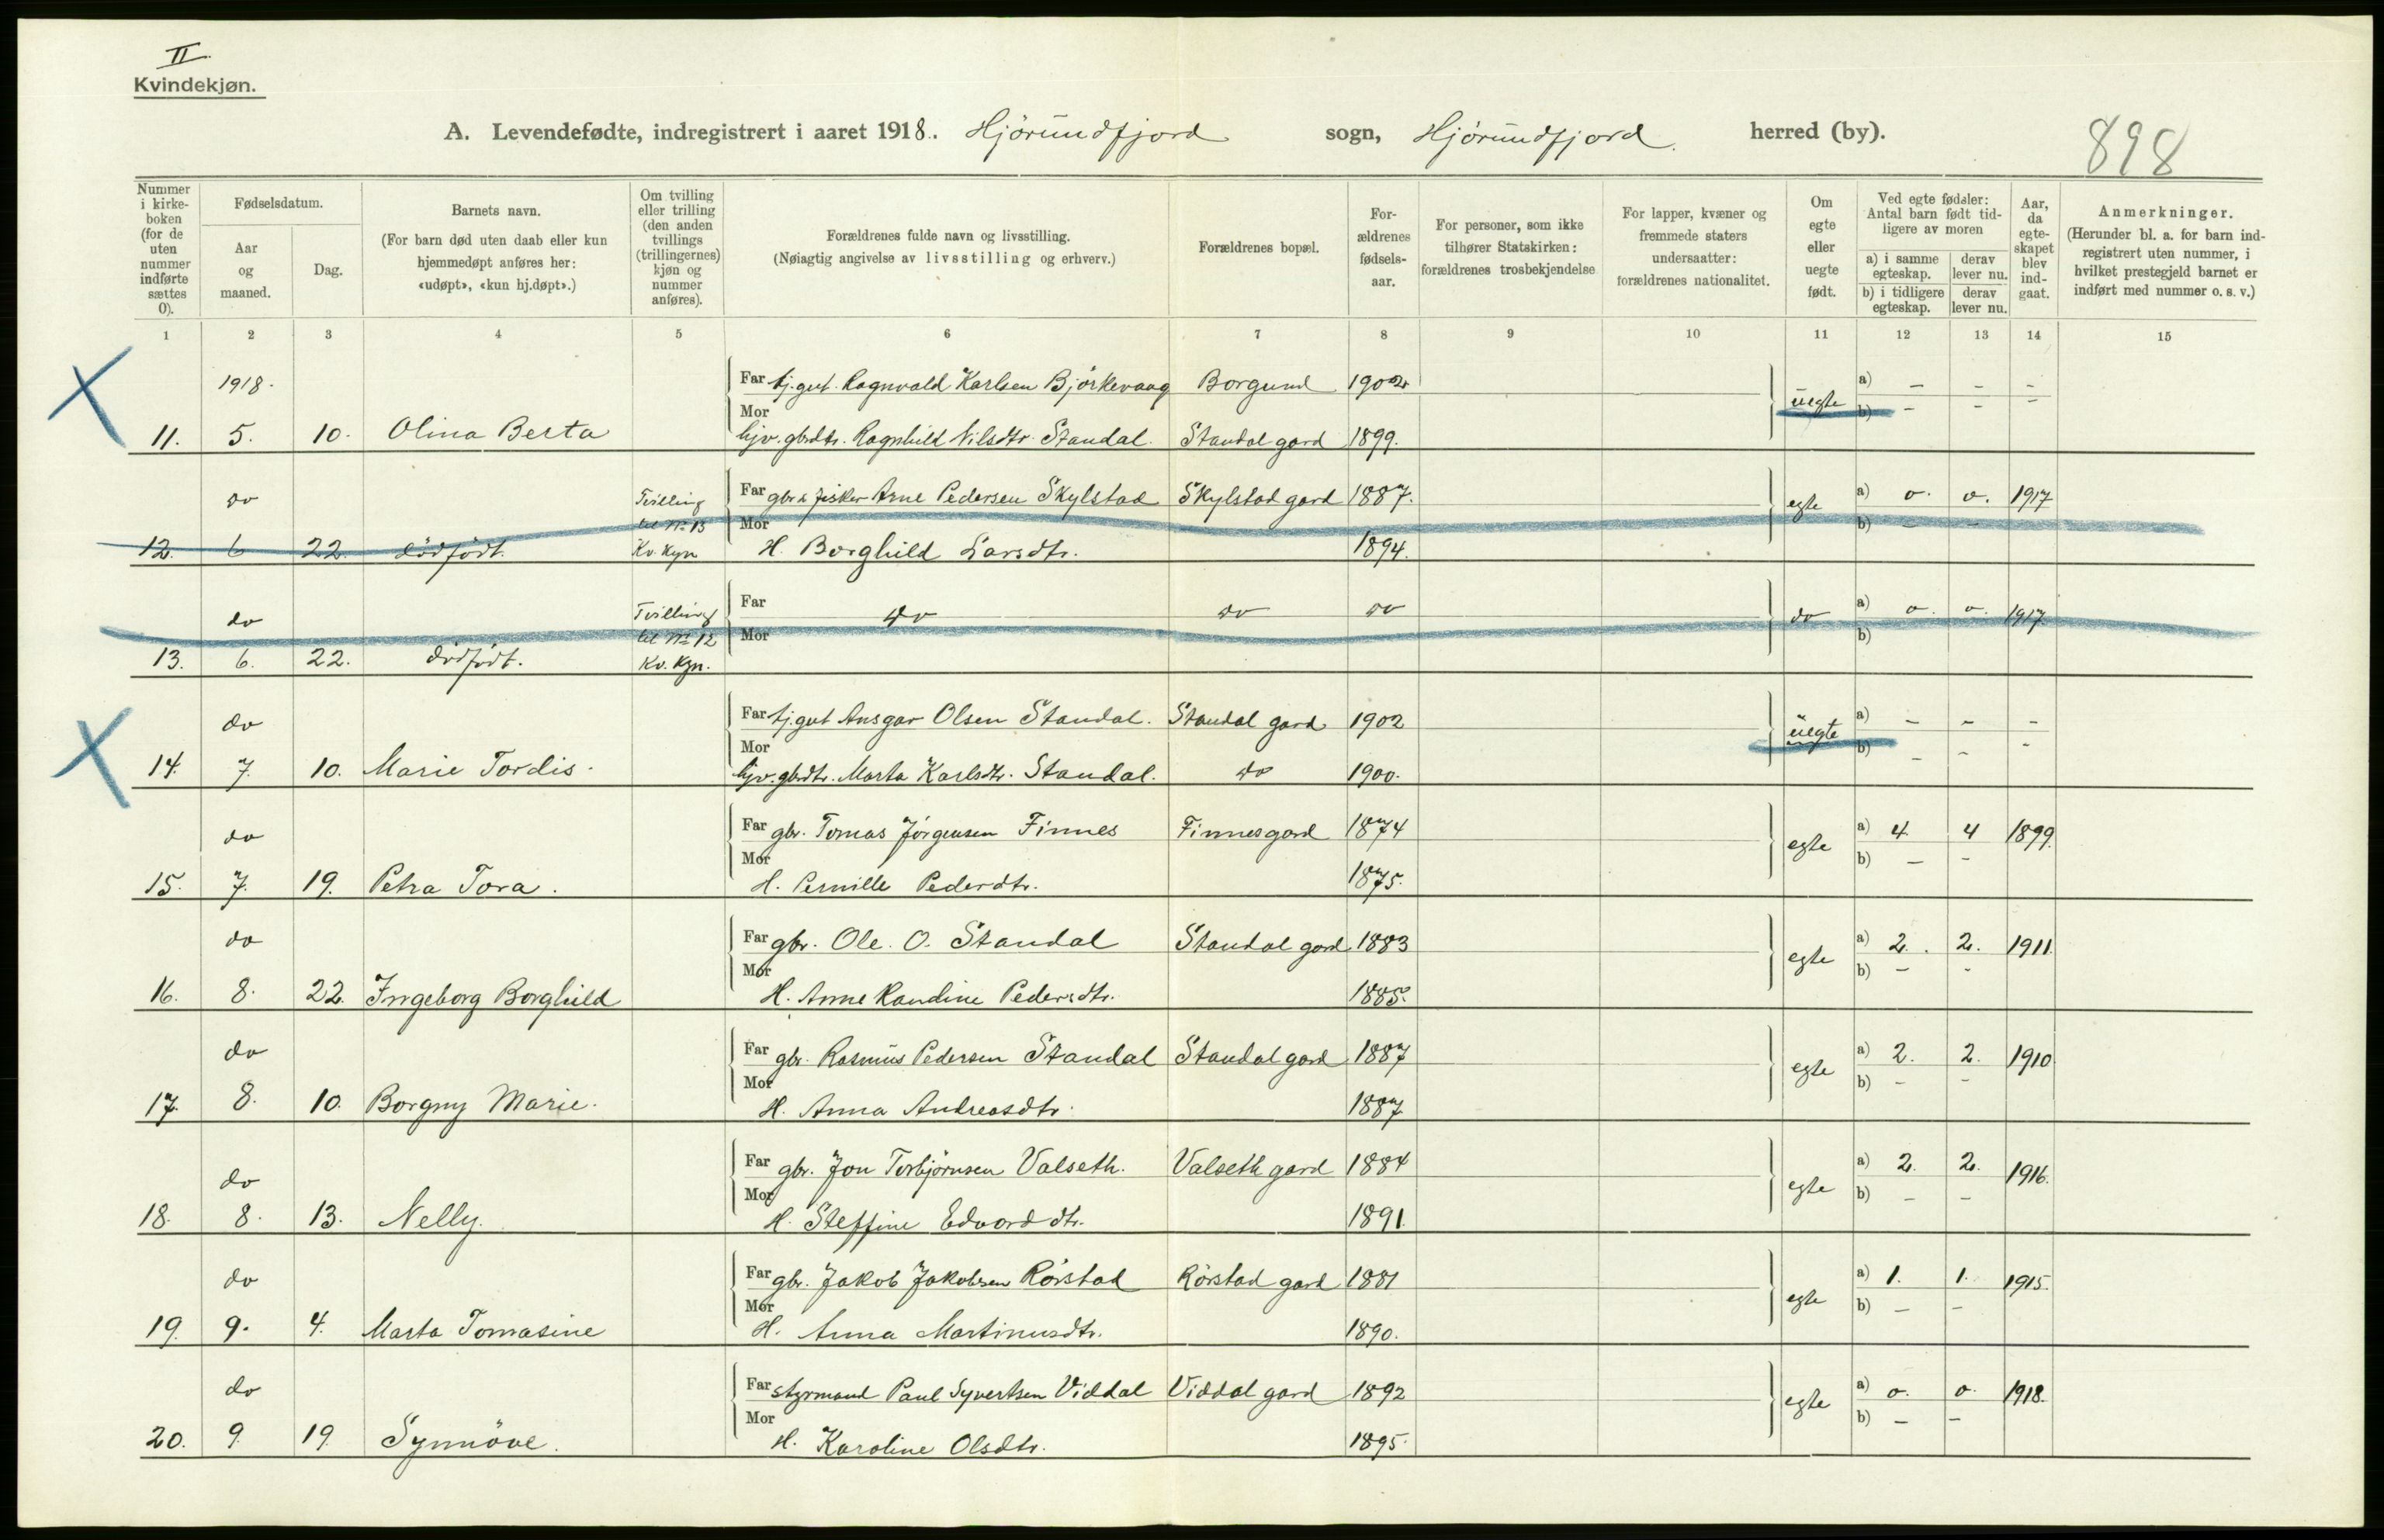 II.
Kvindekjøn.
A. Levendefødte, indregistrert i aaret 1918. Hjörundfjord sogn, Hjörundfjord herred (by).
898
Nummer i kirke-boken (for de uten nummer indførte sættes 0).
Fødselsdatum.
Aar og maaned.
Dag.
Barnets navn.
(For barn død uten daab eller kun hjemmedøpt anføres her: «udøpt», «kun hj.døpt».)
Om tvilling eller trilling (den anden tvillings (trillingernes) kjøn og nummer anføres).
Forældrenes fulde navn og livsstilling.
(Nøiagtig angivelse av livsstilling og erhverv.)
Forældrenes bopæl.
For-ældrenes fødsels-aar.
For personer, som ikke tilhører Statskirken: forældrenes trosbekjendelse
For lapper, kvæner og fremmede staters undersaatter: forældrenes nationalitet.
Om egte eller uegte født.
Ved egte fødsler: Antal barn født tid-ligere av moren
a) i samme egteskap.
derav lever nu.
b) i tidligere egteskap.
derav lever nu.
Aar, da egte-skapet blev ind-gaat.
Anmerkninger.
(Herunder bl. a. for barn ind-registrert uten nummer, i hvilket prestegjeld barnet er indført med nummer o. s. v.)
1 2 3 4 5 6 7 8 9 10 11 12 13 14 15
1918. Far tj.gut. Ragnvald Karlsen Björkevaag Borgund 1902 uegte a) - - -
Mor b) - - -
11. 5. 10. Olina Berta hjv. gbrdtr. Ragnhild Nilsdtr. Standal. Standal gard 1899.
do Tvilling Far gbr & fisker Arne Pedersen Skylstad Skylstad gard 1887. egte a) o. o. 1917
til No 13 Mor b) - -
12. 6 22. dödfödt. Kv. kjn H. Borghild Larsdtr. 1894.
do Tvilling Far do do do do a) o. o. 1917
til No 12 Mor b)
13. 6. 22. dödfödt. Kv. Kjn.
do Far tj.gut Ansgar Olsen Standal. Standal gard. 1902 uegte a) - - -
Mor b) - - -
14. 7. 10. Marie Tordis. hjv. gbrdtr. Marta Karlsdtr. Standal. do 1900.
do Far gbr. Tomas Jörgensen Finnes Finnesgard 1874 egte a) 4 4 1899.
Mor b) - -
15. 7. 19. Petra Tora. H. Pernille Pederdtr. 1875.
do Far gbr. Ole. O. Standal Standal gard 1883 egte a) 2. 2. 1911.
Mor b) - -
16. 8. 22. Ingeborg Borghild H. Anne Randine Pedersdtr. 1885.
do Far gbr. Rasmus Pedersen Standal Standal gard 1887 egte a) 2. 2. 1910
Mor b) - -
17. 8. 10. Borgny Marie. H. Anna Andreasdtr. 1887
do Far gbr. Jon Torbjörnsen Valseth. Valseth gard 1884 egte a) 2. 2. 1916.
Mor b) - -
18. 8. 13. Nelly. H. Steffine Edvarddtr. 1891.
do Far gbr. Jakob Jakobsen Rörstad Rörstad gard 1881 egte a) 1. 1. 1915.
Mor b) - -
19. 9. 4. Marta Tomasine H. Anna Martinusdtr. 1890.
do Far styrmand Paul Syvertsen Viddal Viddal gard 1892 egte a) o. o. 1918.
Mor b) - -
20. 9. 19. Synnöve. H. Karoline Olsdtr. 1895.